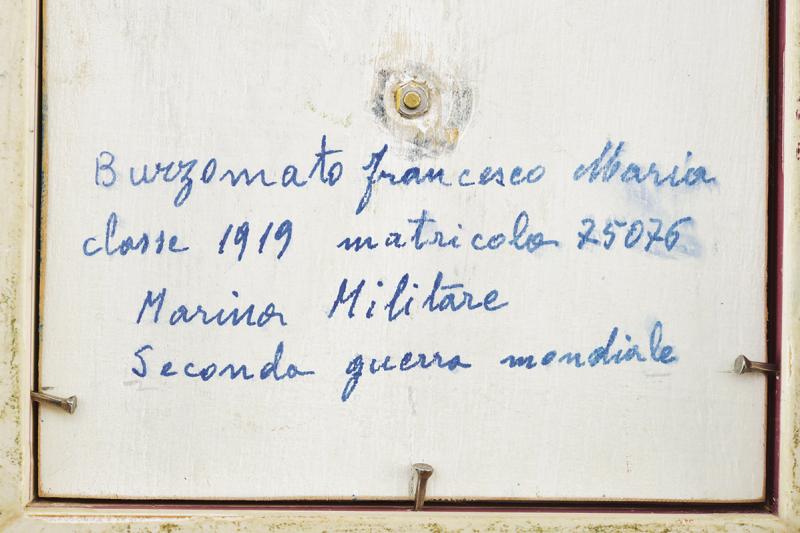 Burzomato francesco Maria
classe 1919 matricola 75076
Marina Militare
Seconda guerra mondiale